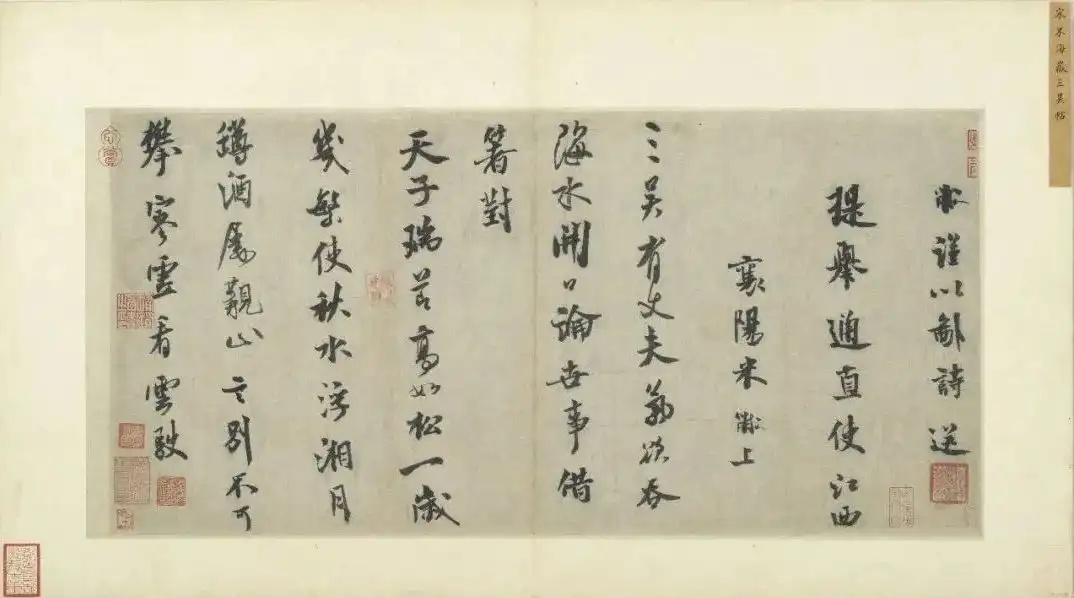 宋米海嶽三吳帖
黻謹以鄙詩送
提舉通直使江西
襄陽米黻上
三吳有丈夫氣欲吞
海水開口論世事借
箸對
天子瑞節高如松一歲
幾繁使秋水浮湘月
罇酒山言別不可
攀寥雲看雲駛